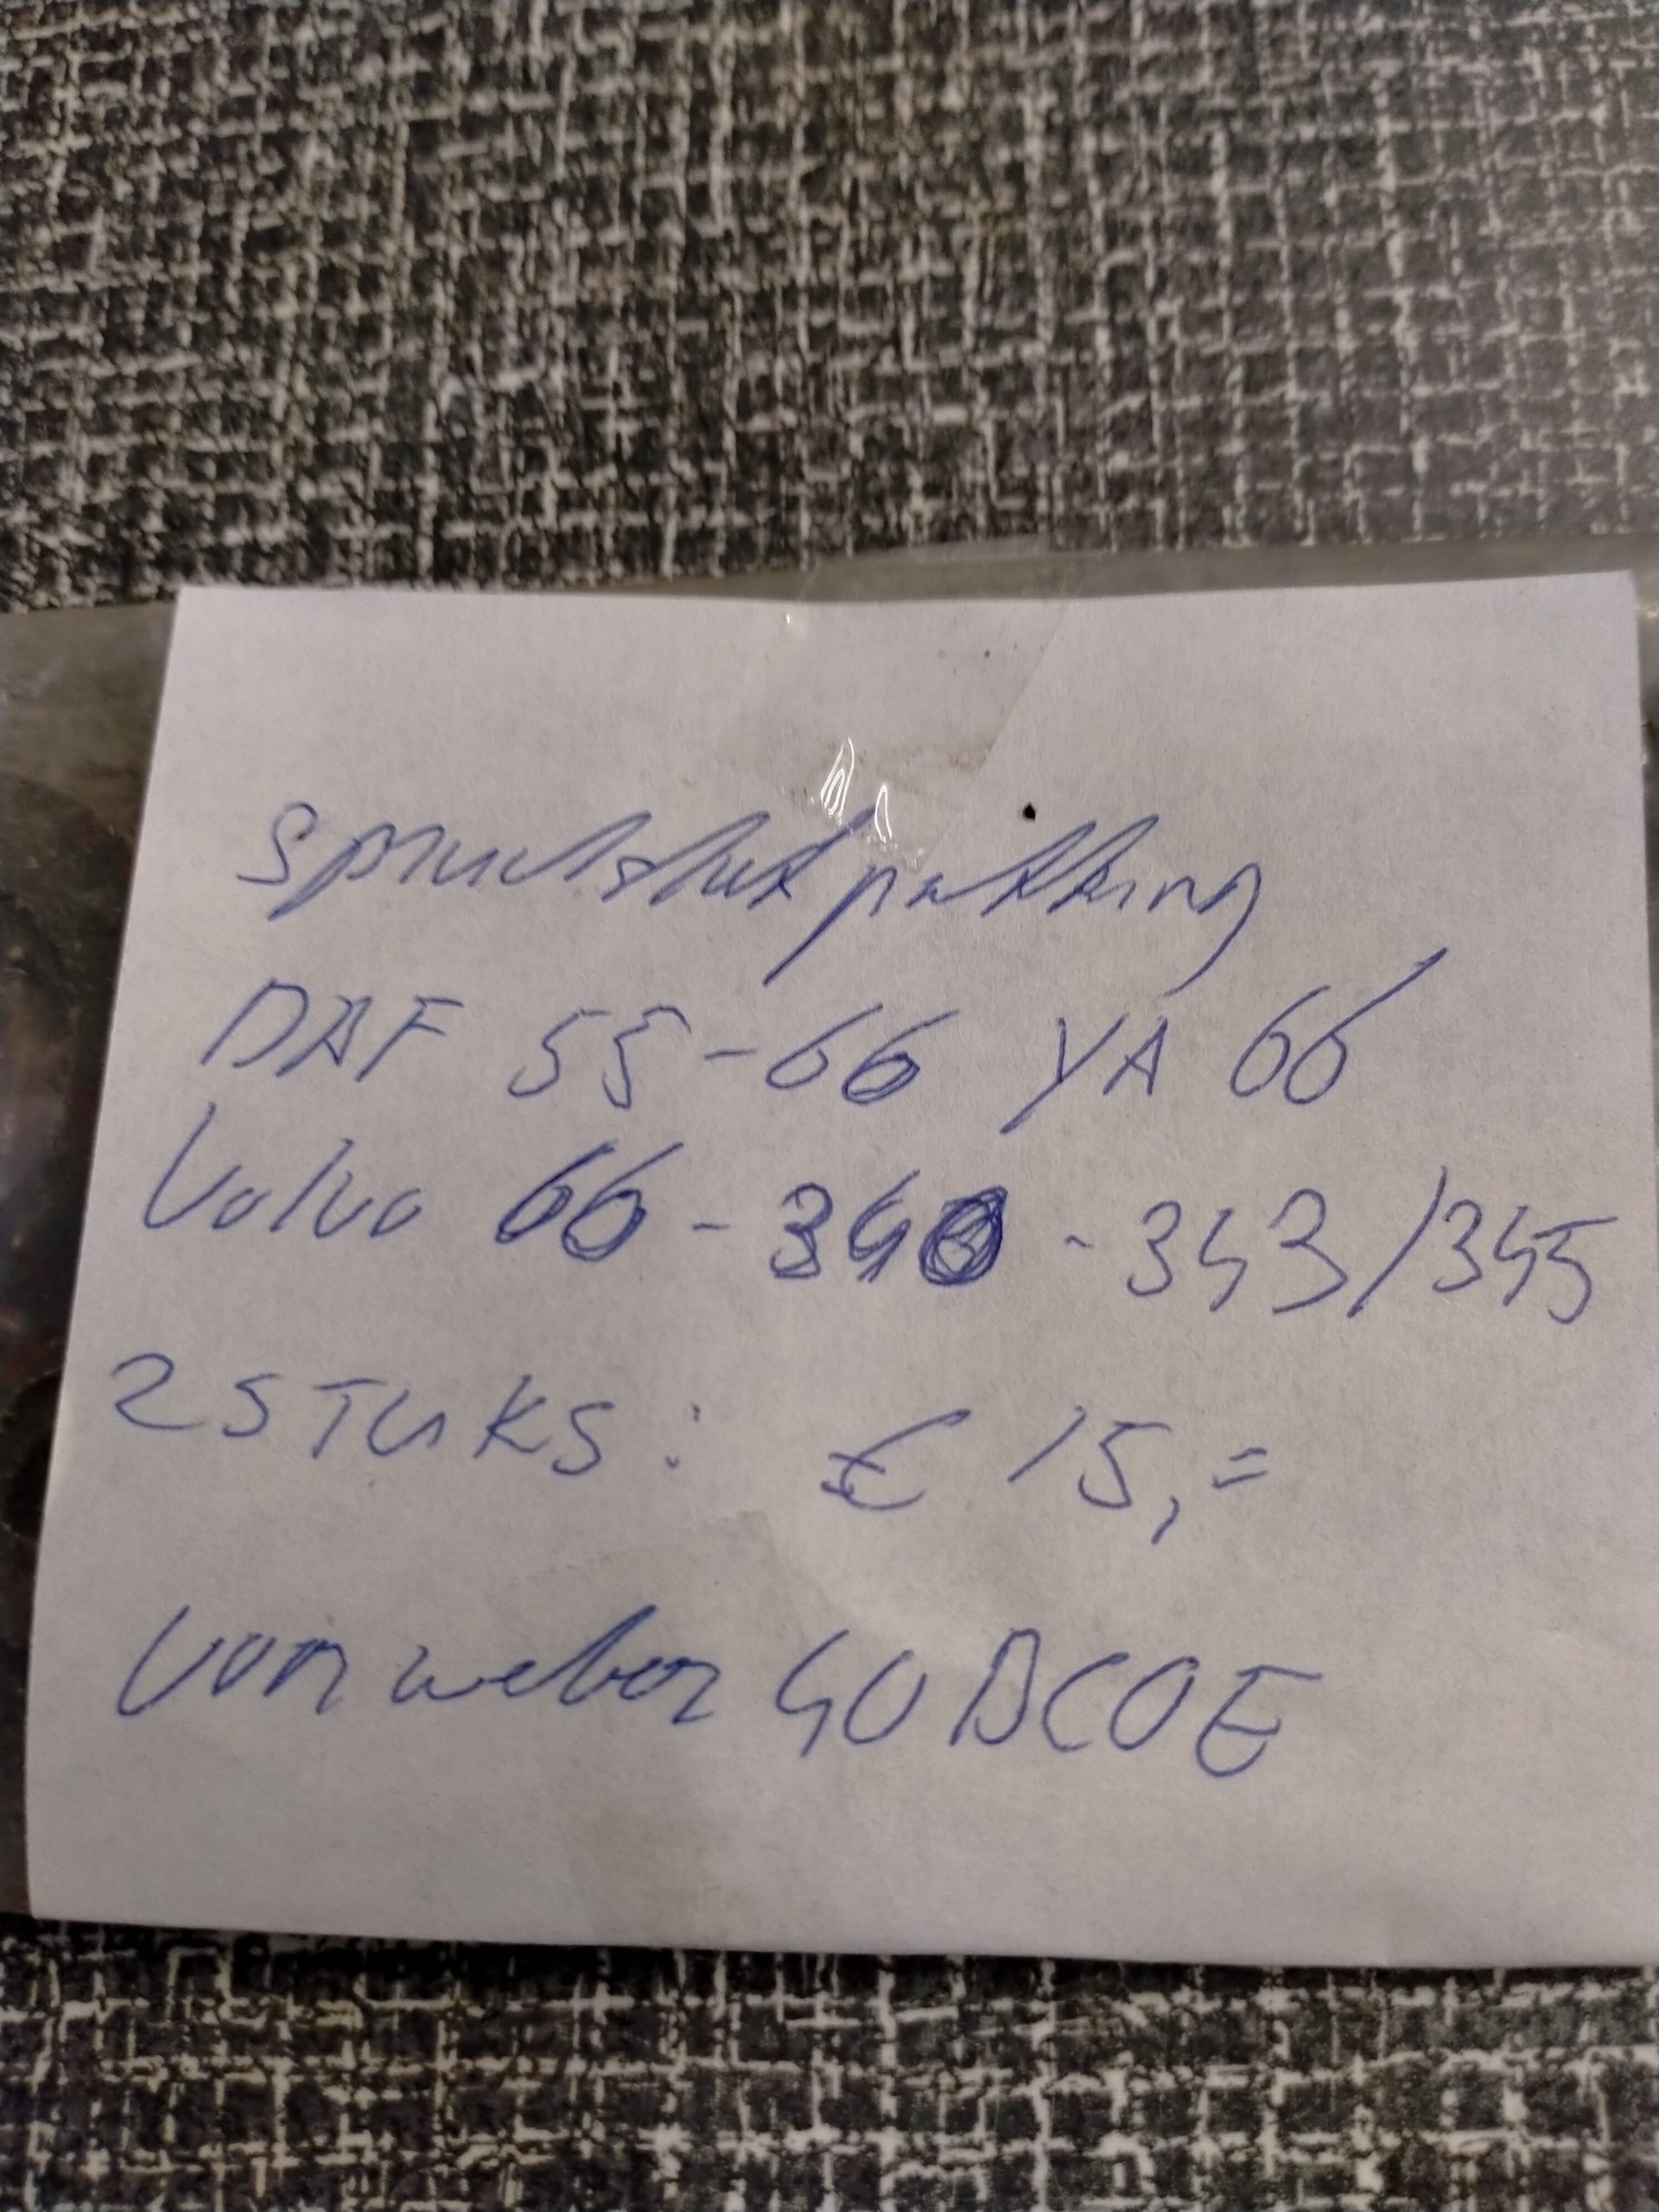 spruitstuk pakking
DAF 55-66 YA 66
Volvo 66 - 340 - 343/345
2 STUKS: € 15,=
Voor weber 40 DCOE